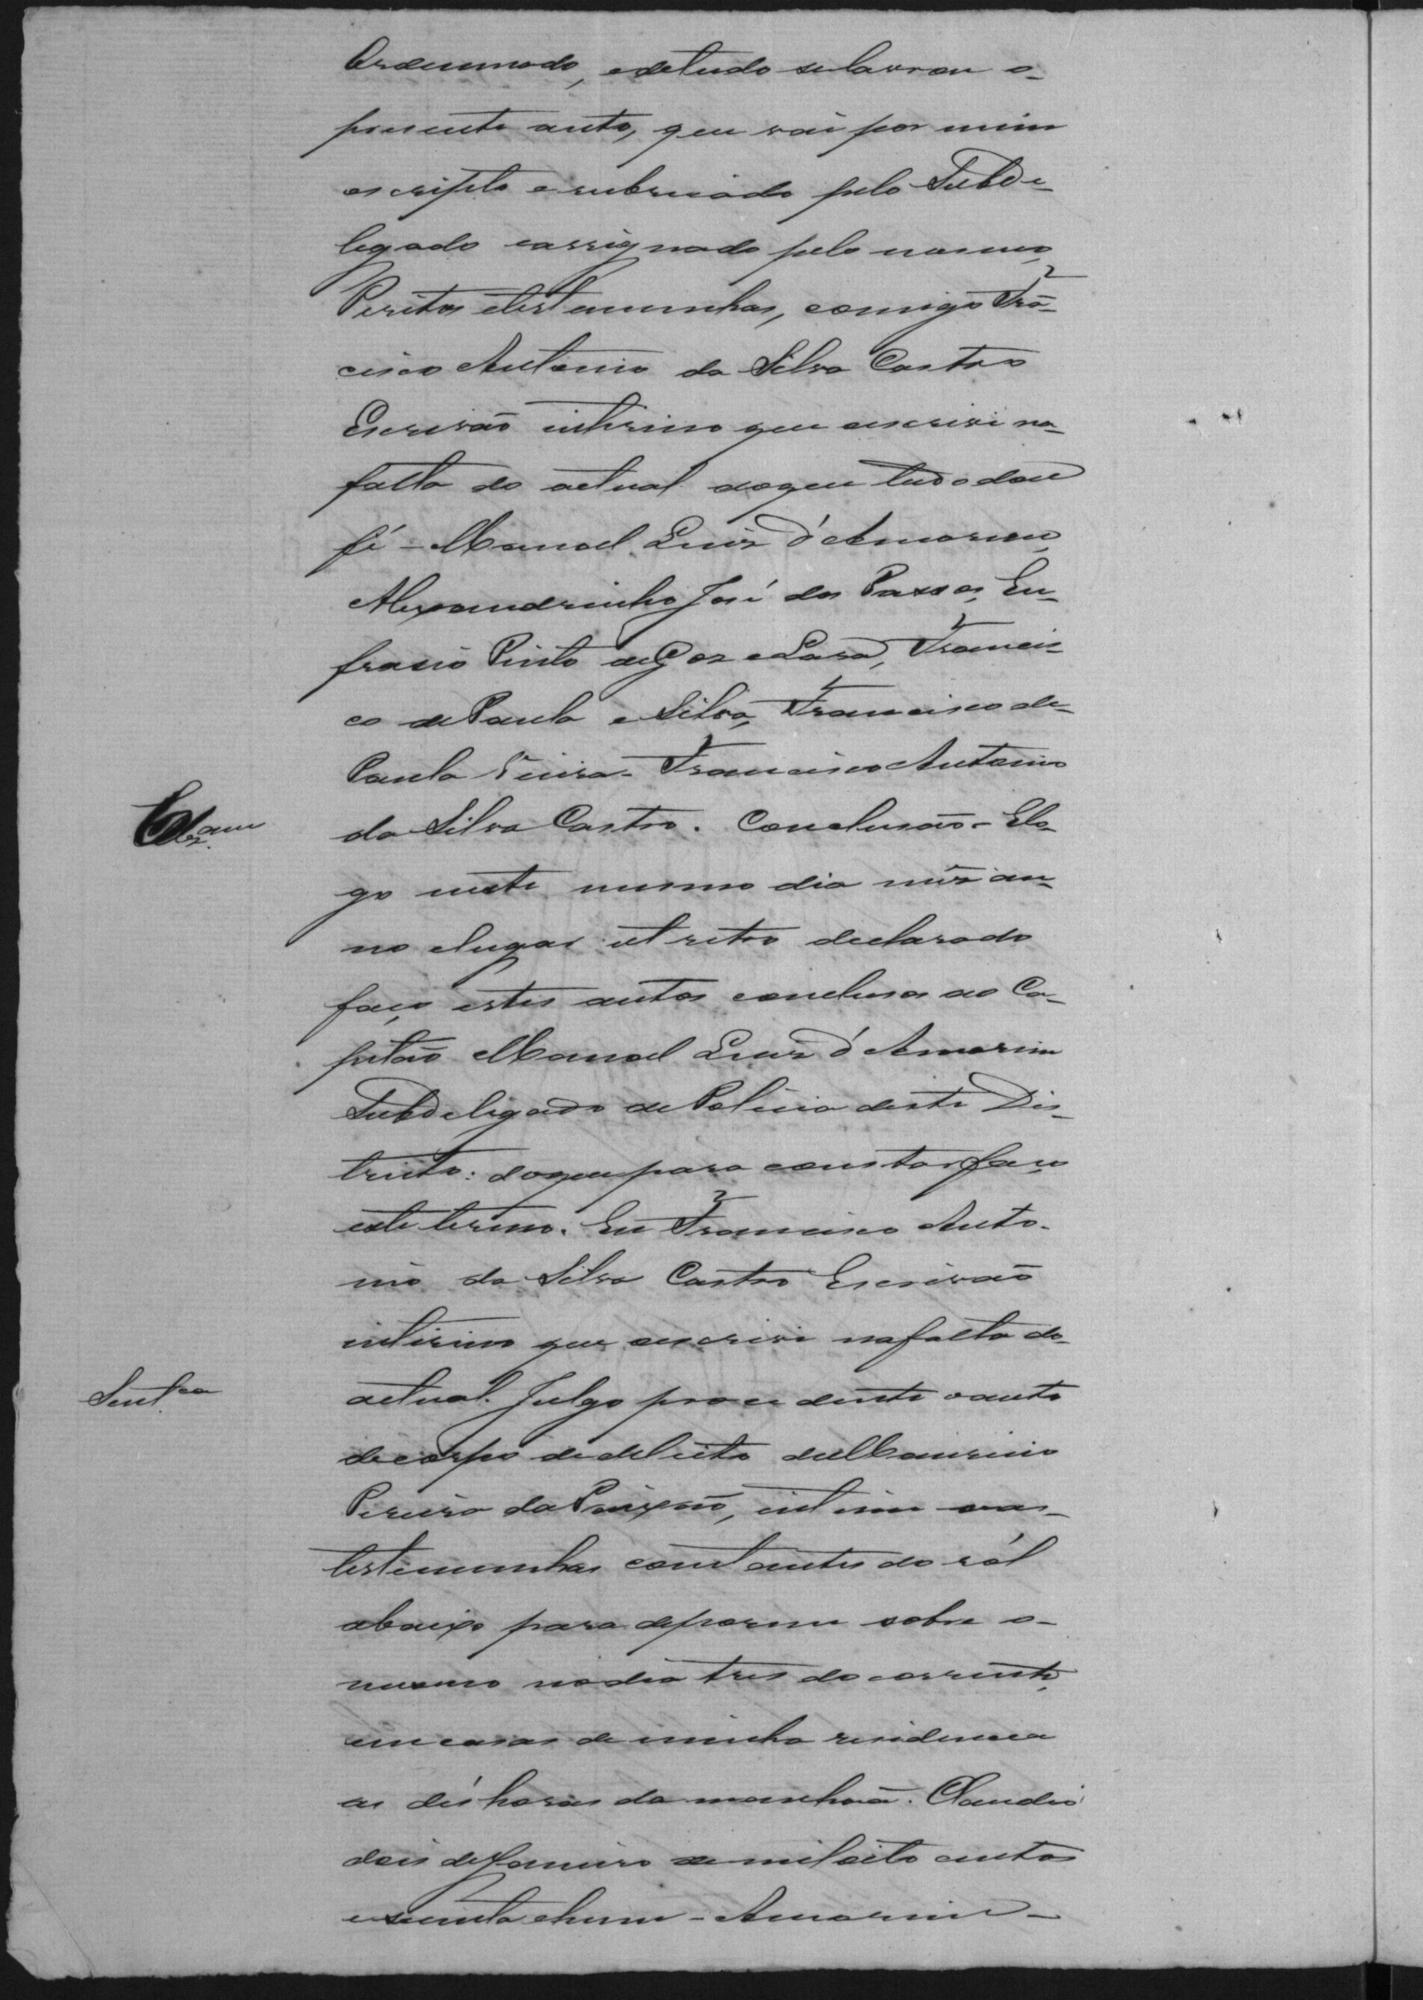 Ordennado, e de tudo se lavrou o-
presente auto, que vai por mim
escripto e rubricado pelo Subde-
legado e assignado pelo mesmo,
Peritos e testemunhas, comigo Frã-
cisco Antonio da Silva Castro
Escrivaõ interino que escrevi na-
falta do actual do que tudo dou
fé - Manoel Luiz d'Amorim,
Alexandrinho José dos Passos, Eu-
frasio Pinto de Goz e Lara, Francis-
co de Paula e Silva, Francisco de-
Paula Vieira - Francisco Antonio
Clsam
da Silva Castro. Conclusaõ - E lo-
go neste mesmo dia mêz an-
no e lugar ut retro declarado
faço estes autos conclusos ao Ca-
pitaõ Manoel Luiz d'Amorim
Subdelegado de Policia deste Dis-
tricto: do que para constar faço
este termo. Eu Francisco Anto-
nio da Silva Castro Escrivaõ
interino que escrevi na falta do-
Sentca
actual. Julgo procedente o auto
de corpo de delicto de Mauricio
Pereira da Paixaõ, intime as-
testemunhas constantes do ról
abaixo para deporem sobre o-
mesmo no dia tres do corrente,
em casas de minha residencia
as dés horas da manhaã. Claudio
dois de Janeiro de mil oito centos
e secenta e hum - Amorim -